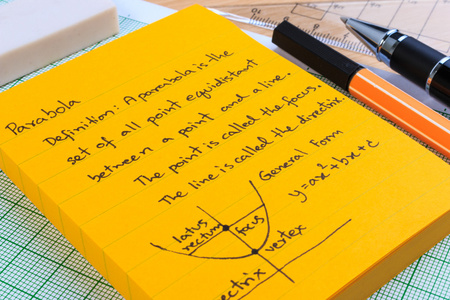 Parabola
Definition: A parabola is the
set of all point equidistant
between a point and a line.
The point is called the focus.
The line is called the directrix.
General Form
y=ax²+bx+c
latus
rectum
focus
vertex
ectrix